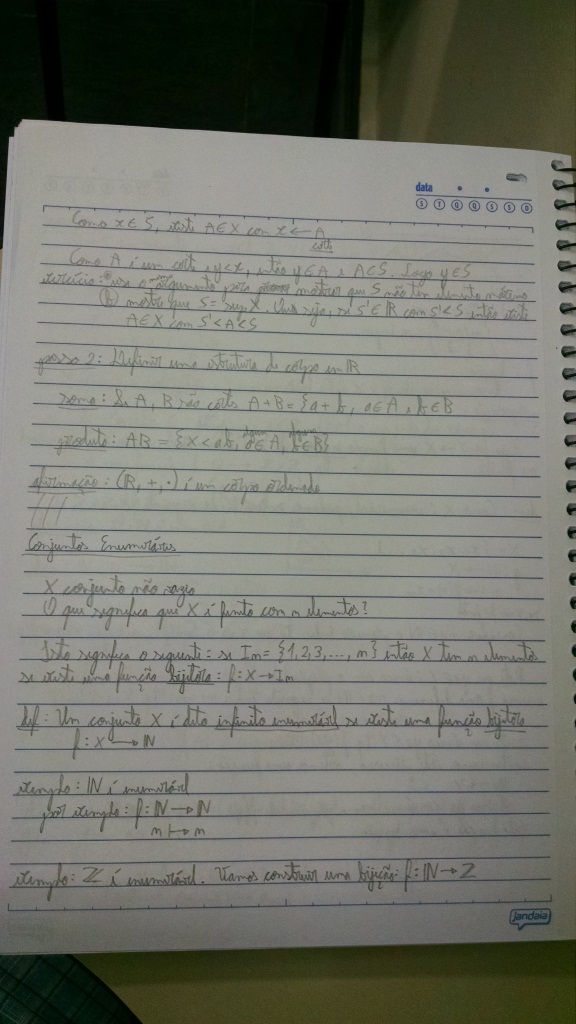 data
S T Q Q S S D
Como x ∈ S, existe A ∈ X com x ∈ A
corte
Como A é um corte e y<x, então y ∈ A e A ∈ S. Logo y ∈ S
exercício: use o argumento para mostrar que S não tem elemento máximo
(b) mostre que S = sup X. Ou seja, se S' ∈ ℝ com S' < S então existe
A ∈ X com S' < A < S
passo 2: Definir uma estrutura de corpo em ℝ
soma: Se A, B são cortes A+B = {a+b, a ∈ A, b ∈ B
produto: AB = {X < ab, a ∈ A, b ∈ B}
afirmação: (ℝ, +, ·) é um corpo ordenado
///
Conjuntos Enumeráveis
X conjunto não vazio
O que significa que X é finito com n elementos?
Isto significa o seguinte: se In = {1,2,3,..., n} então X tem n elementos
se existe uma função bijetora: f: X → In
def: Um conjunto X é dito infinito enumerável se existe uma função bijetora
f: X → ℕ
exemplo: ℕ é enumerável
por exemplo: f: ℕ → ℕ
n ↦ n
exemplo: ℤ é enumerável. Vamos construir uma bijeção: f: ℕ → ℤ
jandaia